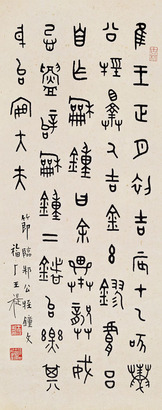 隹王正月初吉辰才乙亥鼄
公牼擇厥吉金玄鏐膚呂
自乍龢鐘曰余畢龏威
忌鑄辝龢鐘二鍺台樂其
身台宴大夫
節臨邾公牼鐘文
福厂王禔